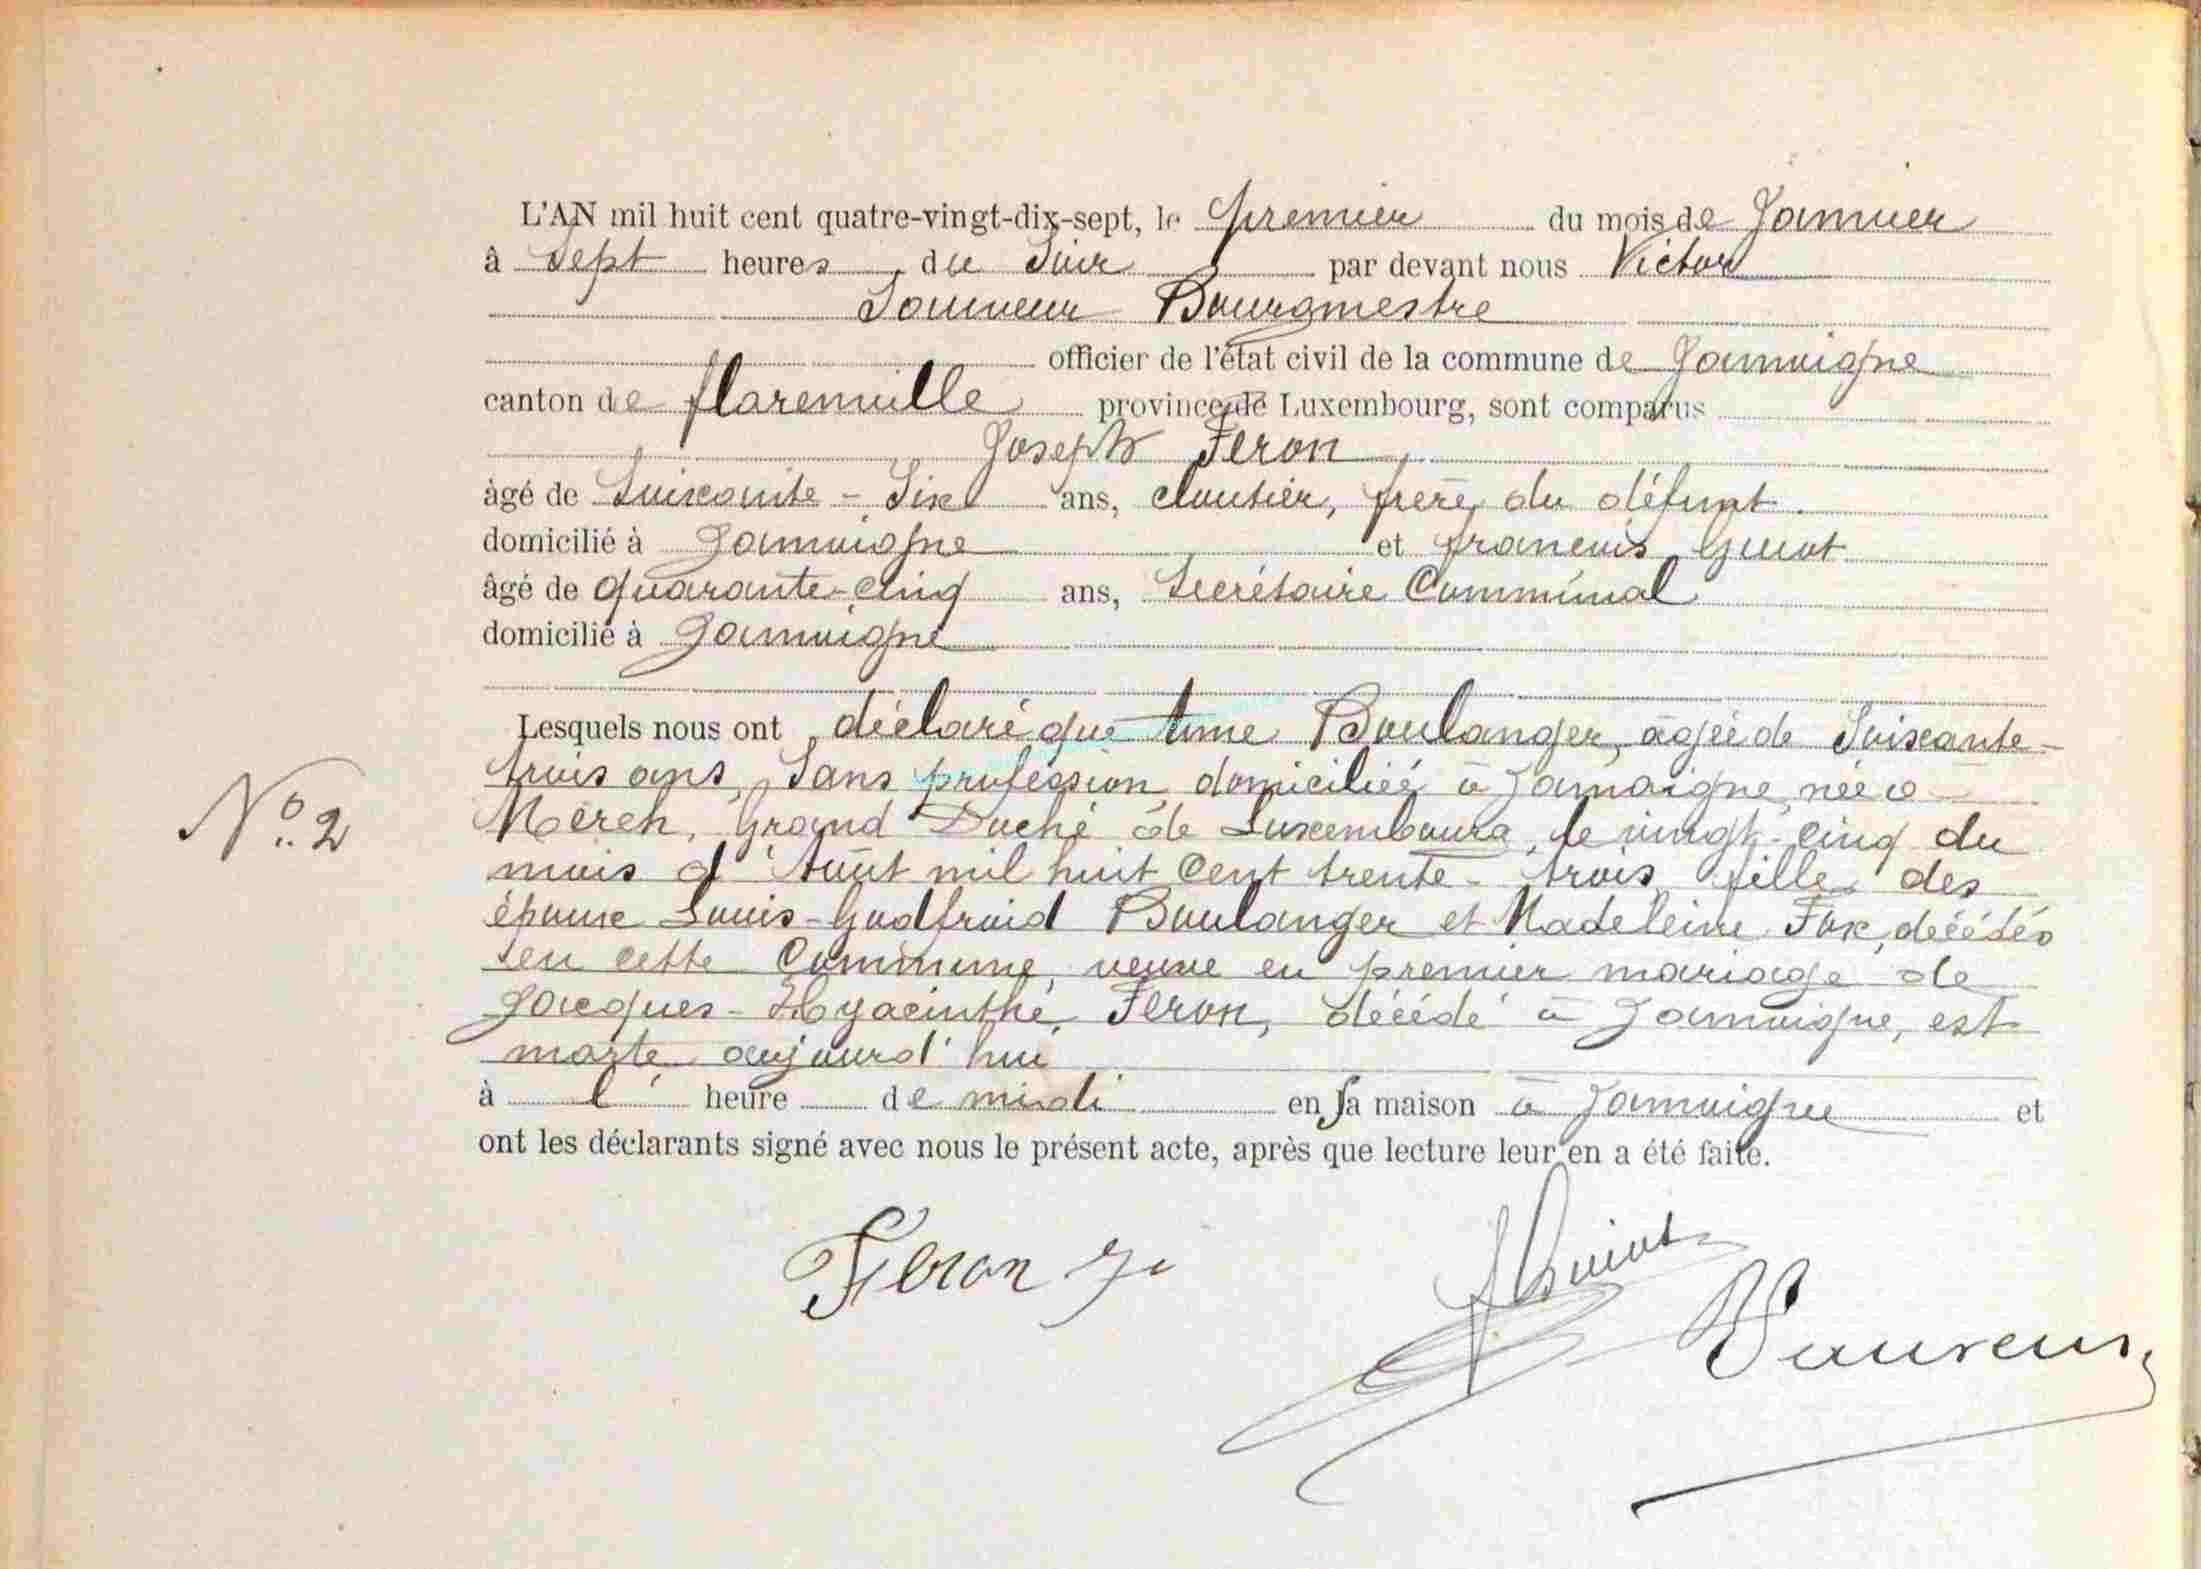 L'AN mil huit cent quatre-vingt-dix-sept, le premier du mois de Janvier
à Sept heures du Soir par devant nous Victor
Sauveur Bourgmestre
officier de l'état civil de la commune de Jamoigne
canton de florenville province de Luxembourg, sont comparus
Joseph Feron
âgé de Soixante-Six ans, cloutier, frère du défunt.
domicilié à Jamoigne et francois Guiot
âgé de quarante-cinq ans, Secrétaire Communal
domicilié à Jamoigne
Lesquels nous ont déclaré que Anne Boulanger, agée de Soixante-
trois ans, Sans profession, domiciliée à Jamoigne, née à
Mersch, Grand Duché de Luxembourg, le vingt-cinq du
N° 2
mois d'Août mil huit Cent trente-trois, fille des
époux Louis-Godfroid Boulanger et Madeleine Fox, décédés
en cette Commune, veuve en premier mariage de
Jacques-Hyacinthe Feron, décédé à Jamoigne, est
morte aujourd'hui
à l' heure de midi en Sa maison à Jamoigne et
ont les déclarants signé avec nous le présent acte, après que lecture leur en a été faite.
Feron J.
Guiot
V Sauveur